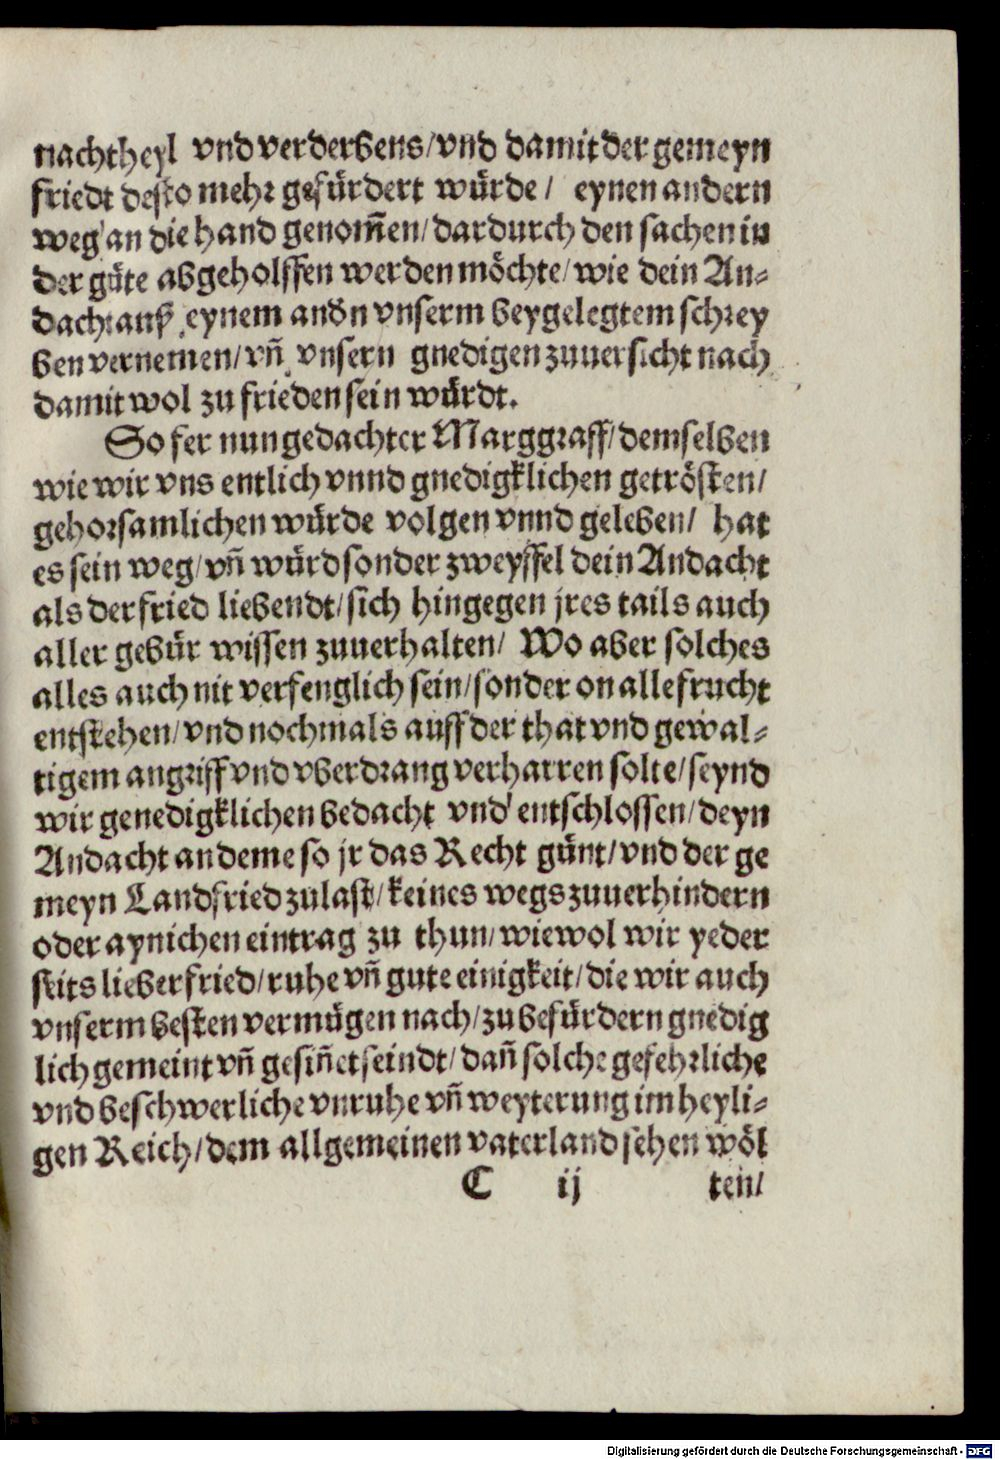 nachtheyl vnd verderbens/vnd damit der gemeyn
friedt desto mehr gefürdert würde/ eynen andern
weg an die hand genom̃en/dardurch den sachen in
der güte abgeholffen werden möchte/wie dein An-
dacht auß eynem andn vnserm beygelegtem schrey
ben vernemen/vñ vnsern gnedigen zuuersicht nach
damit wol zu frieden sein würdt.
So fer nun gedachter Marggraff/demselben
wie wir vns entlich vnnd gnedigklichen getrösten/
gehorsamlichen würde volgen vnnd geleben/ hat
es sein weg/vñ würd sonder zweyffel dein Andacht
als der fried liebendt/sich hingegen jres tails auch
aller gebür wissen zuuerhalten/ Wo aber solches
alles auch nit verfenglich sein/sonder on alle frucht
entstehen/vnd nochmals auff der that vnd gewal-
tigem angriff vnd vberdrang verharren solte/seynd
wir genedigklichen bedacht vnd entschlossen/deyn
Andacht an deme so jr das Recht günt/vnd der ge
meyn Landfried zulast/keines wegs zuuerhindern
oder aynichen eintrag zu thun/wiewol wir yeder
stits lieber fried/ruhe vñ gute einigkeit/die wir auch
vnserm besten vermügen nach/zu befürdern gnedig
lich gemeint vñ gesiñet seindt/dañ solche gefehrliche
vnd beschwerliche vnruhe vñ weyterung im heyli-
gen Reich/dem allgemeinen vaterland sehen wöl
C ij ten/
Digitalisierung gefördert durch die Deutsche Forschungsgemeinschaft - DFG